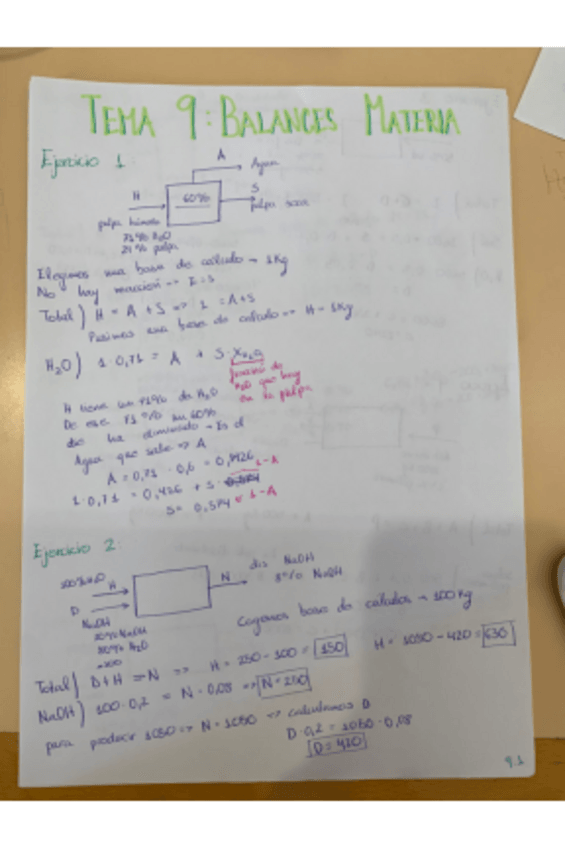 TEMA 9: BALANCES MATERIA
Ejercicio 1:
A
Agua
H
60%
S
pulpa seca
pulpa húmeda
71% H2O
29% pulpa
Elegimos una base de calculo → 1Kg
No hay reacción => E=S
Total) H = A + S => 1 = A+S
Pusimos una base de calculo => H = 1Kg
H2O) 1·0,71 = A + S·XH2O
fracción de
H2O que hay
en la pulpa
H tiene un 71% de H2O
De ese 71% un 60%
ha disminuido
Agua que sale => A
A = 0,71 · 0,6 = 0,426
1-A
1·0,71 = 0,426 + S·
S = 0,574 1-A
Ejercicio 2:
100% H2O
H
N
dis NaOH
8% NaOH
D
NaOH
20% NaOH
80% H2O
Cogemos base de calculos → 100Kg
Total) D+H = N => H = 250-100 = 150
H = 1050-420 = 630
NaOH) 100·0,2 = N·0,08 => N = 250
para producir 1050 => N = 1050 => calculamos D
D·0,2 = 1050·0,08
D = 420
9.1